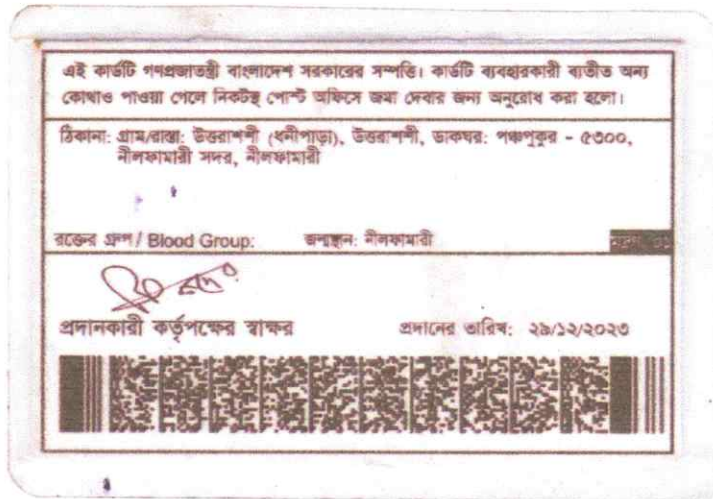 এই কার্ডটি গণপ্রজাতন্ত্রী বাংলাদেশ সরকারের সম্পত্তি। কার্ডটি ব্যবহারকারী ব্যতীত অন্য
কোথাও পাওয়া গেলে নিকটস্থ পোস্ট অফিসে জমা দেবার জন্য অনুরোধ করা হলো।
ঠিকানা: গ্রাম/রাস্তা: উত্তরাশশী (ধনীপাড়া), উত্তরাশশী, ডাকঘর: পঞ্চপুকুর - ৫৩০০,
নীলফামারী সদর, নীলফামারী
রক্তের গ্রুপ / Blood Group: জন্মস্থান: নীলফামারী
প্রদানকারী কর্তৃপক্ষের স্বাক্ষর প্রদানের তারিখ: ২৯/১২/২০২৩